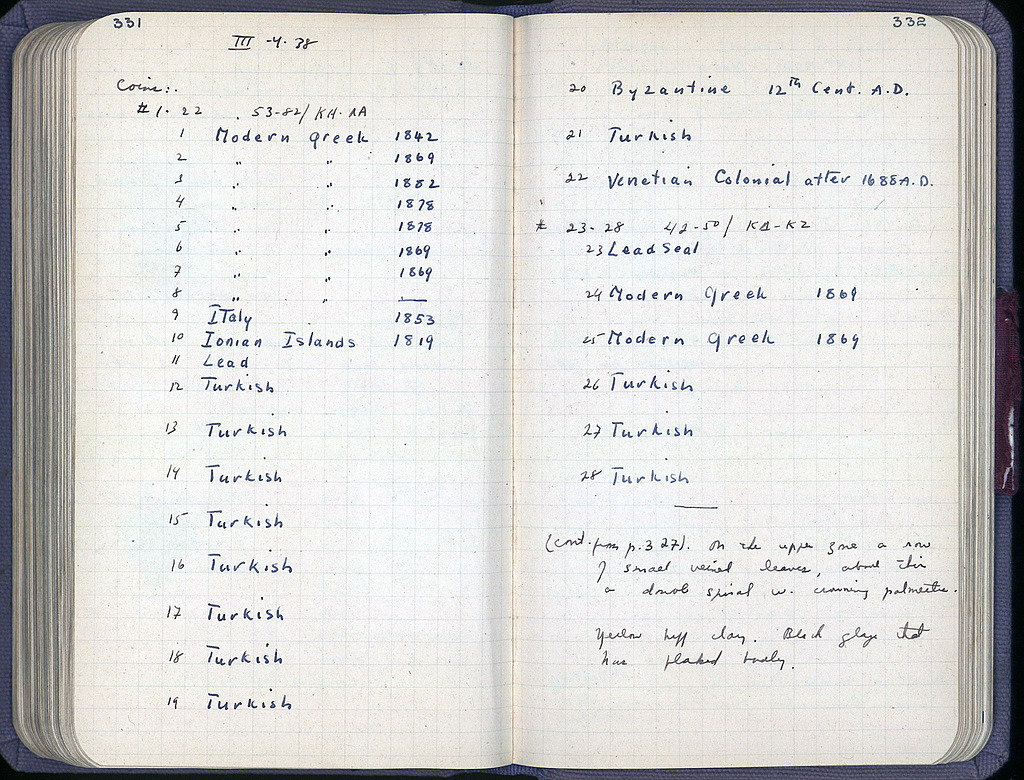 331
III -4. 38
Coins:.
# 1. 22 . 53-82/ KH. ΛA
1 Modern Greek 1842
2 " " 1869
3 " " 1882
4 " " 1878
5 " " 1878
6 " " 1869
7 " " 1869
8 " " —
9 ITaly 1853
10 Ionian Islands 1819
11 Lead
12 Turkish
13 Turkish
14 Turkish
15 Turkish
16 Turkish
17 Turkish
18 Turkish
19 Turkish
332
20 Byzantine 12th Cent. A.D.
21 Turkish
22 Venetian Colonial after 1688 A.D.
# 23-28 42-50/ KΔ-KZ
23 Lead Seal
24 Modern Greek 1869
25 Modern Greek 1869
26 Turkish
27 Turkish
28 Turkish
(cont. from p. 327). On the upper zone a row
of small veined leaves, above this
a double spiral w. crowning palmettes.
Yellow buff clay. Black glaze that
has flaked badly.